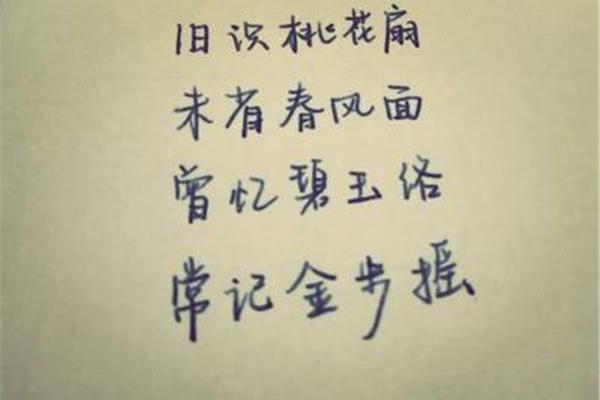 旧识桃花扇
未省春风面
曾忆碧玉络
常记金步摇